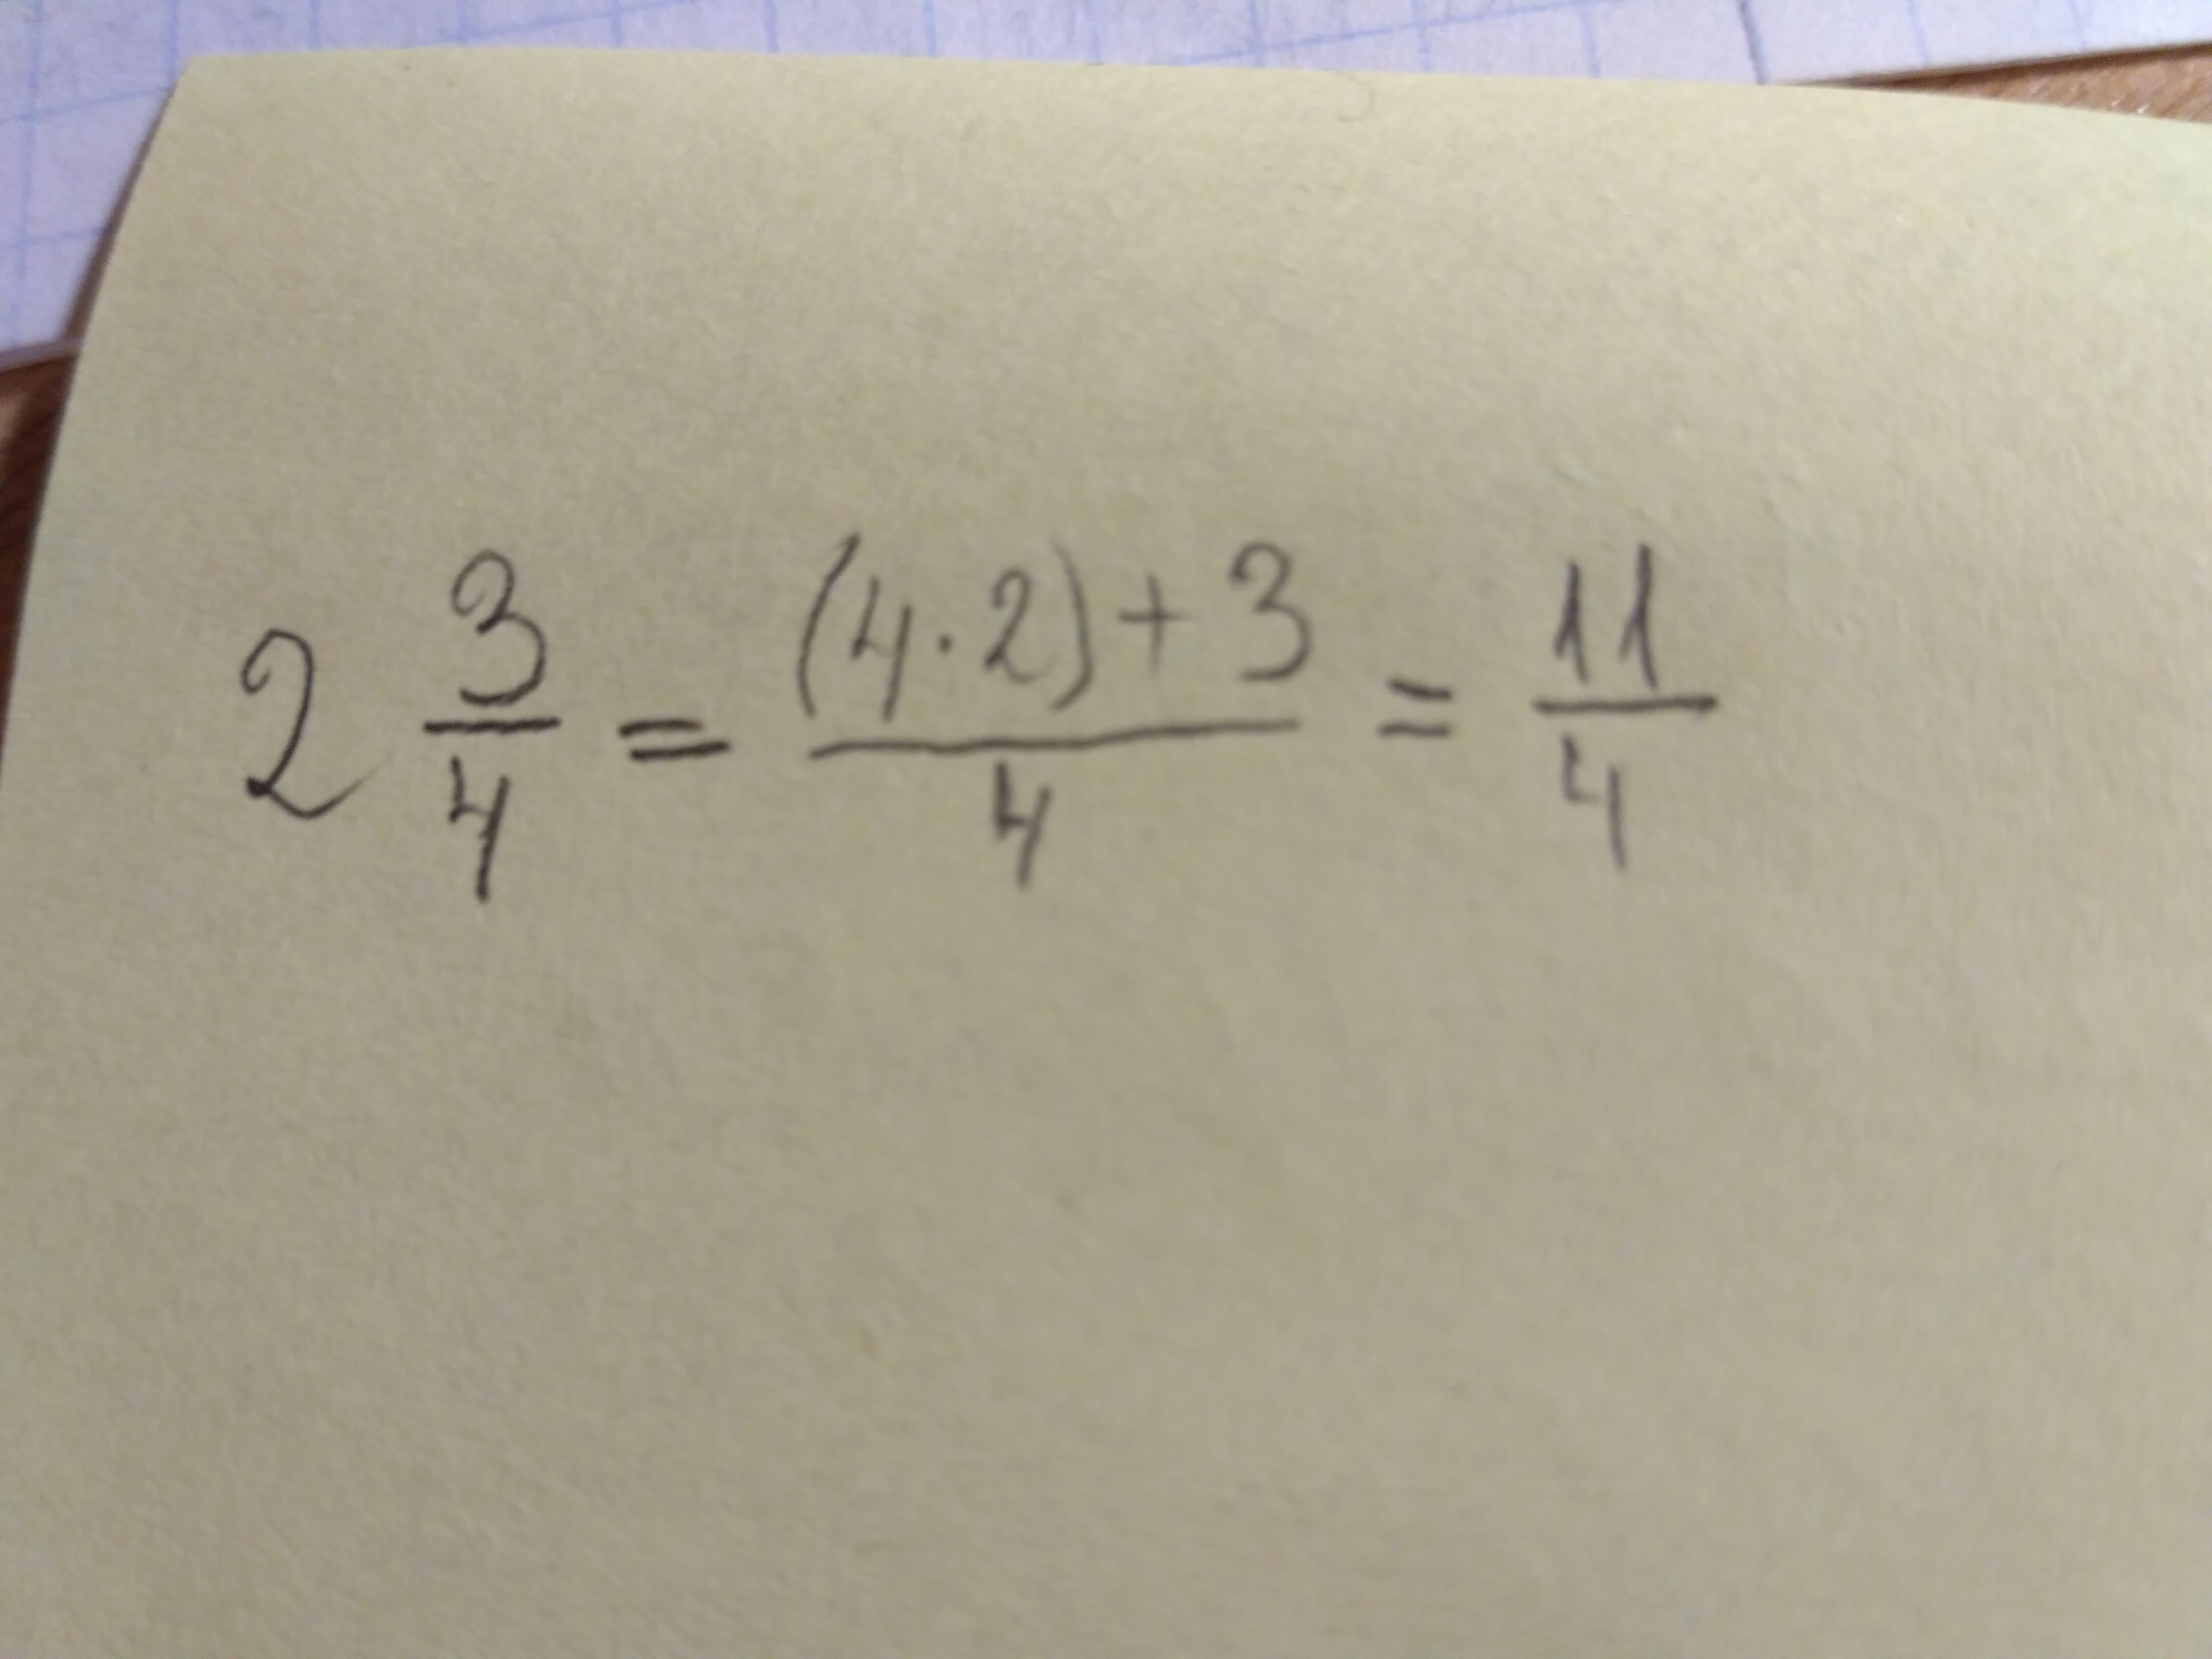 2 3/4 = ((4·2)+3)/4 = 11/4